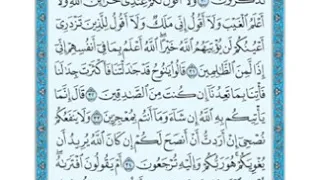 تَذَكَّرُونَ ۝٣٠ وَلَآ أَقُولُ لَكُمْ عِندِى خَزَآئِنُ ٱللَّهِ وَلَآ
أَعْلَمُ ٱلْغَيْبَ وَلَآ أَقُولُ إِنِّى مَلَكٌ وَلَآ أَقُولُ لِلَّذِينَ تَزْدَرِىٓ
أَعْيُنُكُمْ لَن يُؤْتِيَهُمُ ٱللَّهُ خَيْرًا ٱللَّهُ أَعْلَمُ بِمَا فِىٓ أَنفُسِهِمْ إِنِّىٓ
إِذًا لَّمِنَ ٱلظَّٰلِمِينَ ۝٣١ قَالُوا۟ يَٰنُوحُ قَدْ جَٰدَلْتَنَا فَأَكْثَرْتَ جِدَٰلَنَا
فَأْتِنَا بِمَا تَعِدُنَآ إِن كُنتَ مِنَ ٱلصَّٰدِقِينَ ۝٣٢ قَالَ إِنَّمَا
يَأْتِيكُم بِهِ ٱللَّهُ إِن شَآءَ وَمَآ أَنتُم بِمُعْجِزِينَ ۝٣٣ وَلَا يَنفَعُكُمْ
نُصْحِىٓ إِنْ أَرَدتُّ أَنْ أَنصَحَ لَكُمْ إِن كَانَ ٱللَّهُ يُرِيدُ أَن
يُغْوِيَكُمْ هُوَ رَبُّكُمْ وَإِلَيْهِ تُرْجَعُونَ ۝٣٤ أَمْ يَقُولُونَ ٱفْتَرَىٰهُ